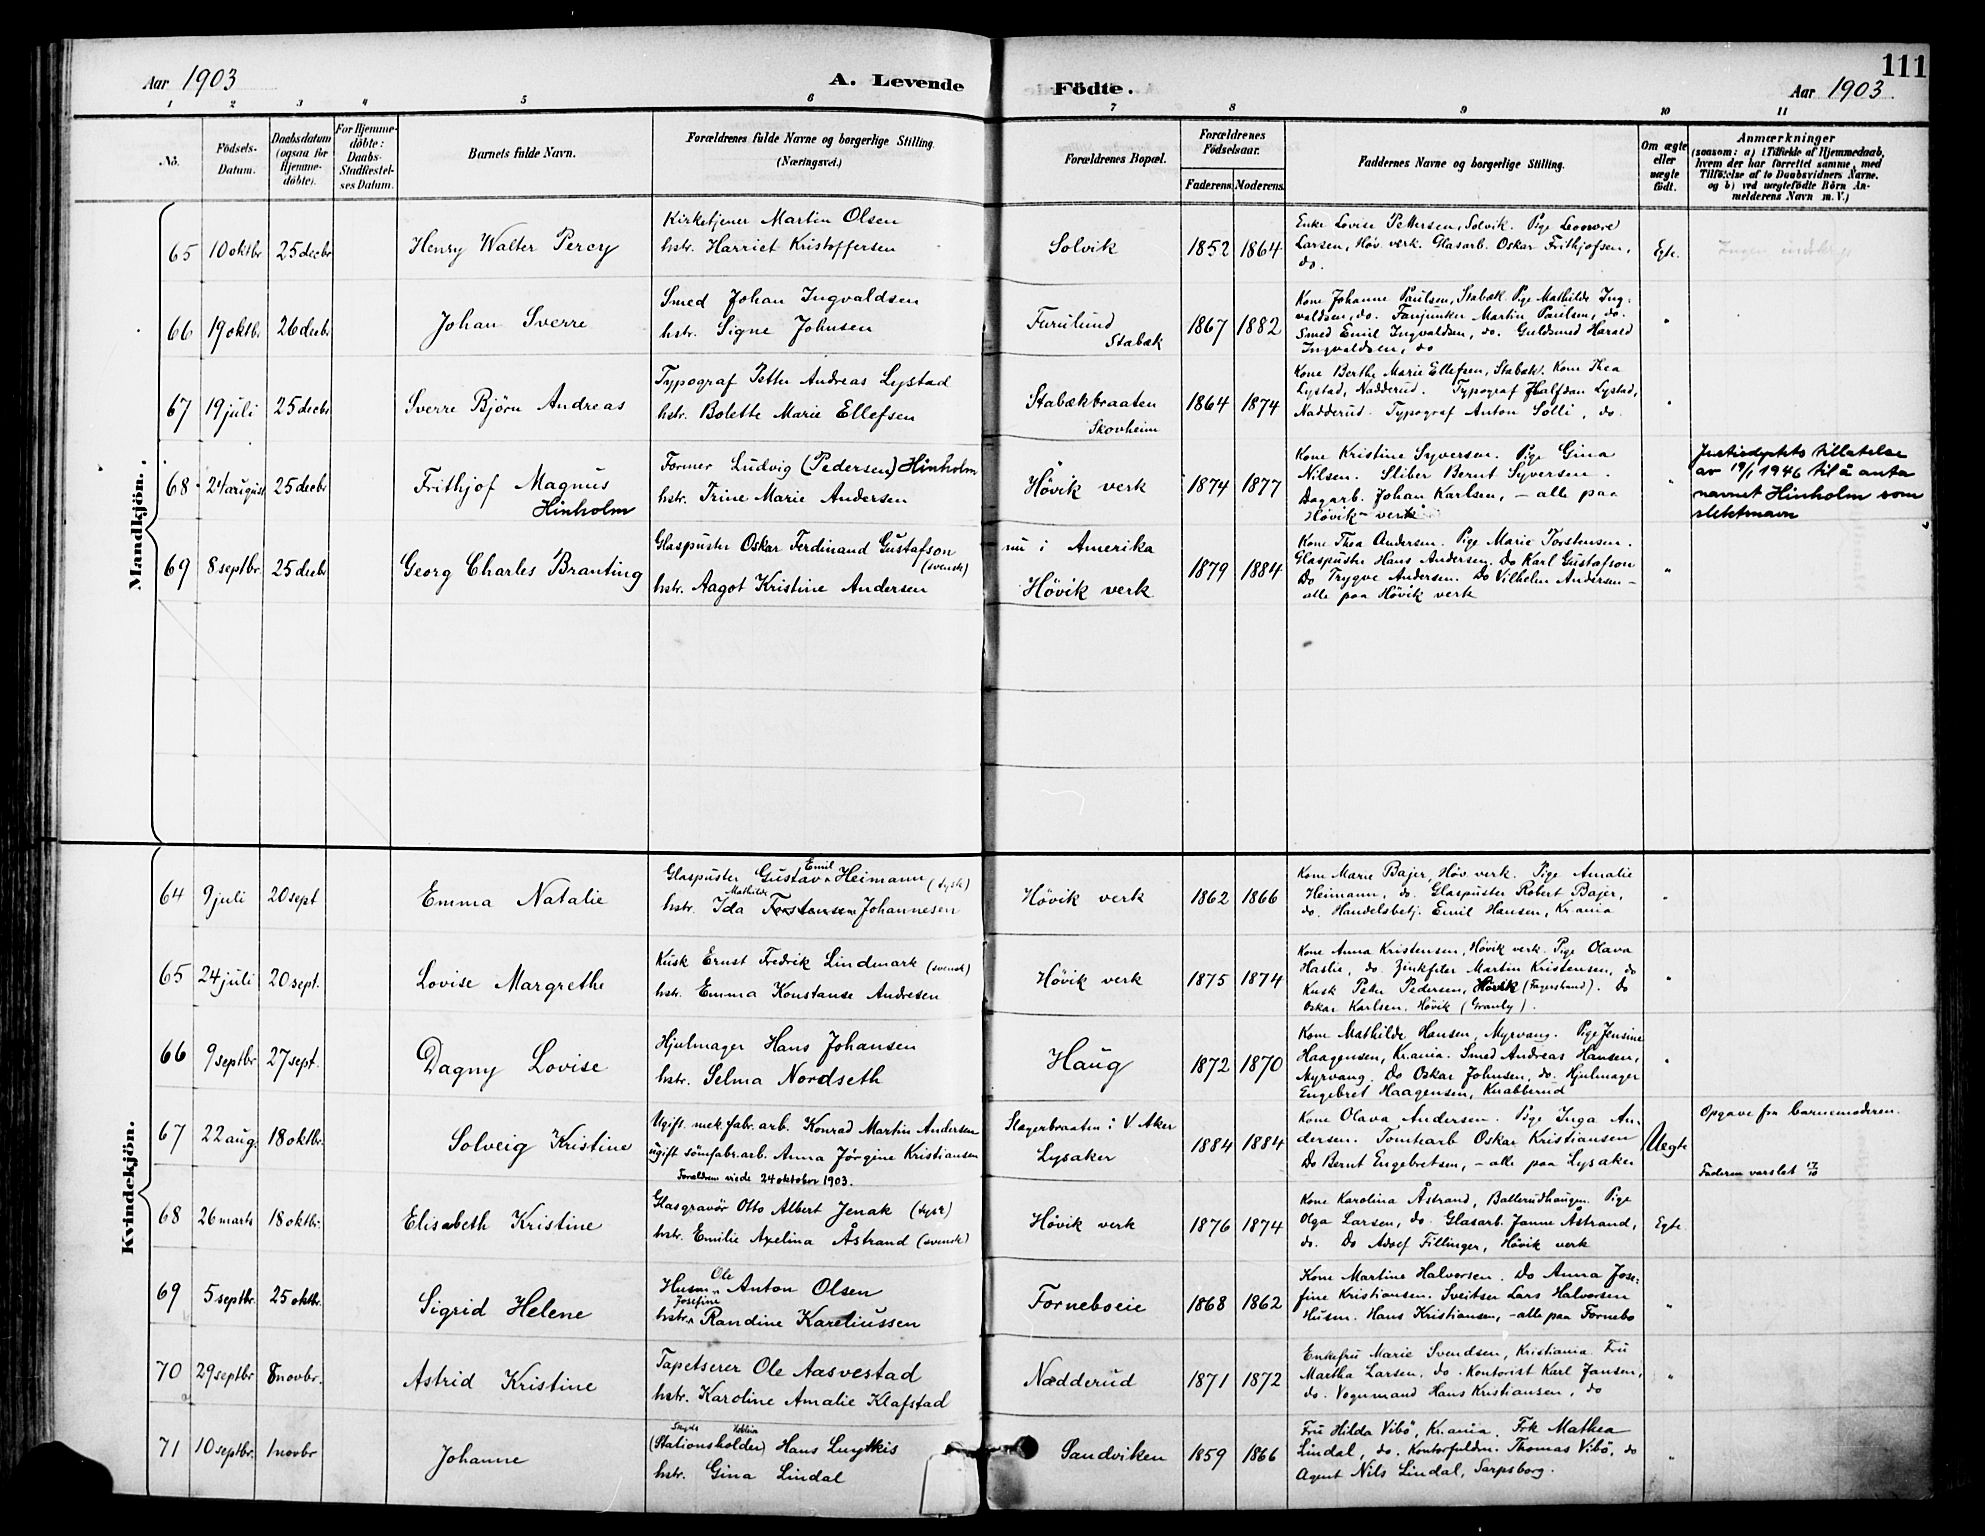 111
Aar 1903
A. Levende
Födte.
Aar 1903
1 2 3 4 5 6 7 8 9 10 11
No.
Födsels-
Datum.
Daabsdatum
(ogsaa for
Hjemme-
döbte).
For Hjemme-
döbte:
Daabs-
Stadfæstel-
ses Datum.
Barnets fulde Navn.
Forældrenes fulde Navne og borgerlige Stilling.
(Næringsvei.)
Forældrenes Bopæl.
Forældrenes
Födselsaar.
Faderens. Moderens.
Faddernes Navne og borgerlige Stilling.
Om ægte
eller
uægte
født.
Anmærkninger
(saasom: a) i Tilfælde af Hjemmedaab,
hvem der har forrettet samme, med
Tilföielse af to Daabsvidners Navne.
og b) ved uægtefödte Börn An-
melderens Navn m. V.)
Mandkjön.
65 10 oktbr 25 decbr
Henry Walter Percy
Kirketjener Martin Olsen
hstr. Harriet Kristoffersen
Solvik
1852 1864
Enke Lovise Pettersen, Solvik. Pige Leonore
Larsen, Höv. verk. Glasarb. Oskar Frithjofsen,
do.
Egte.
66 19 oktbr 26 decbr
Johan Sverre
Smed Johan Ingvaldsen
hstr. Signe Johnsen
Furulund
Stabæk
1867 1882
Kone Johanne Paulsen, Stabæk. Pige Mathilde Ing-
valdsen, do. Fanjunker Martin Paulsen, do.
Smed Emil Ingvaldsen, do. Guldsmed Harald
Ingvaldsen, do
"
67 19 juli 25 decbr
Sverre Björn Andreas
Typograf Petter Andreas Lystad
hstr. Bolette Marie Ellefsen
Stabækbraaten
Skovheim
1864 1874
Kone Berthe Marie Ellefsen, Stabæk. Kone Thea
Lystad, Nadderud. Typograf Halfdan Lystad,
Nadderud. Typograf Anton Solli, do.
"
68 24 august 25 decbr
Frithjof Magnus
Hinholm
Former Ludvig (Pedersen) Hinholm
hstr. Trine Marie Andersen
Hövik verk
1874 1877
Kone Kristine Syversen. Pige Gina
Nilsen. Sliber Bernt Syversen.
Dagarb. Johan Karlsen, – alle paa
Hövik verk
"
Justisdptets tillatelse
av 19/1 1946 til å anta
navnet Hinholm som
slektsnavn
69 8 septbr. 25 decbr
Georg Charles Branting
Glaspuster Oskar Ferdinand Gustafson
(svensk)
hstr. Aagot Kristine Andersen
nu i Amerika
Hövik verk
1879 1884
Kone Thea Andersen. Pige Marie Torstensen.
Glaspuster Hans Andersen. Do Karl Gustafson
Do Trygve Andersen. Do Vilhelm Andersen –
alle paa Hövik verk
"
Kvindekjön.
64 9 juli 20 sept
Emma Natalie
Glaspuster Gustav Emil Heimann (tysk)
hstr. Ida Mathilde Torstensen Johannesen
Hövik verk
1862 1866
Kone Marie Bajer, Höv. verk. Pige Amalie
Heimann, do. Glaspuster Robert Bajer,
do. Handelsbetj. Emil Hansen, Kr.ania
"
65 24 juli 20 sept.
Lovise Margrethe
Kusk Ernst Fredrik Lindmark (svensk)
hstr. Emma Konstanse Andresen
Hövik verk
1875 1874
Kone Anna Kristensen, Hövik verk. Pige Olava
Haslie, do. Martin Kristensen, do
Kusk Petter Pedersen, Hövik (Fagerstrand). Do
Oskar Karlsen, Hövik (Granly).
"
66 9 septbr 27 sept.
Dagny Lovise
Hjulmager Hans Johansen
hstr. Selma Nordseth
Haug
1872 1870
Kone Mathilde Hansen, Myrvang. Pige Jensine
Haagensen, Kr.ania. Smed Andreas Hansen,
Myrvang. Do Oskar Johnsen, do. Hjulmager
Engebret Haagensen, Knabberud
"
67 22 aug. 18 oktbr.
Solveig Kristine
Ugift mek.fabr.arb. Konrad Martin Andersen
ugift sömfabr.arb. Anna Jörgine Kristiansen
Forældrene viede 24 oktober 1903.
Slagerbraaten i V. Aker
Lysaker
1884 1884
Kone Olava Andersen. Pige Inga An-
dersen. Tomtearb Oskar Kristiansen
Do Bernt Engebretsen, – alle paa Lysaker
Uegte
Opgave fra barnemoderen.
Faderen varslet 17/10
68 26 marts 18 oktbr.
Elisabeth Kristine
Glasgravör Otto Albert Jenak (tysk)
hstr. Emilie Axelina Åstrand (svensk)
Hövik verk
1876 1874
Kone Karolina Åstrand, Ballerudhaugen. Pige
Olga Larsen, do. Glasarb. Janne Åstrand,
do. Do Adolf Fillinger, Hövik verk
Egte.
69 5 septbr. 25 oktbr.
Sigrid Helene
Husm. Ole Anton Olsen
hstr. Josefine Randine Kareliussen
Forneboeie
1868 1862
Kone Martine Halvorsen. Do Anna Jose-
fine Kristiansen. Sveitser Lars Halvorsen
Husm. Hans Kristiansen, – alle paa Fornebo
"
70 29 septbr 8 novbr.
Astrid Kristine
Tapetserer Ole Aasvestad
hstr. Karoline Amalie Klafstad
Nadderud
1871 1872
Enkefru Marie Svendsen, Kristiania. Fru
Martha Larsen, do. Kontorist Karl Jansen,
do. Vognmand Hans Kristiansen, do
"
71 10 septbr. 1 novbr
Johanne
(Stationsholder) Hans Luytkis
hstr. Gina Lindal
Sandviken
1859 1866
Fru Hilda Vibö, Kr.ania. Frk Mathea
Lindal, do. Kontorfuldm. Thomas Vibö, do
Agent Nils Lindal, Sarpsborg.
"